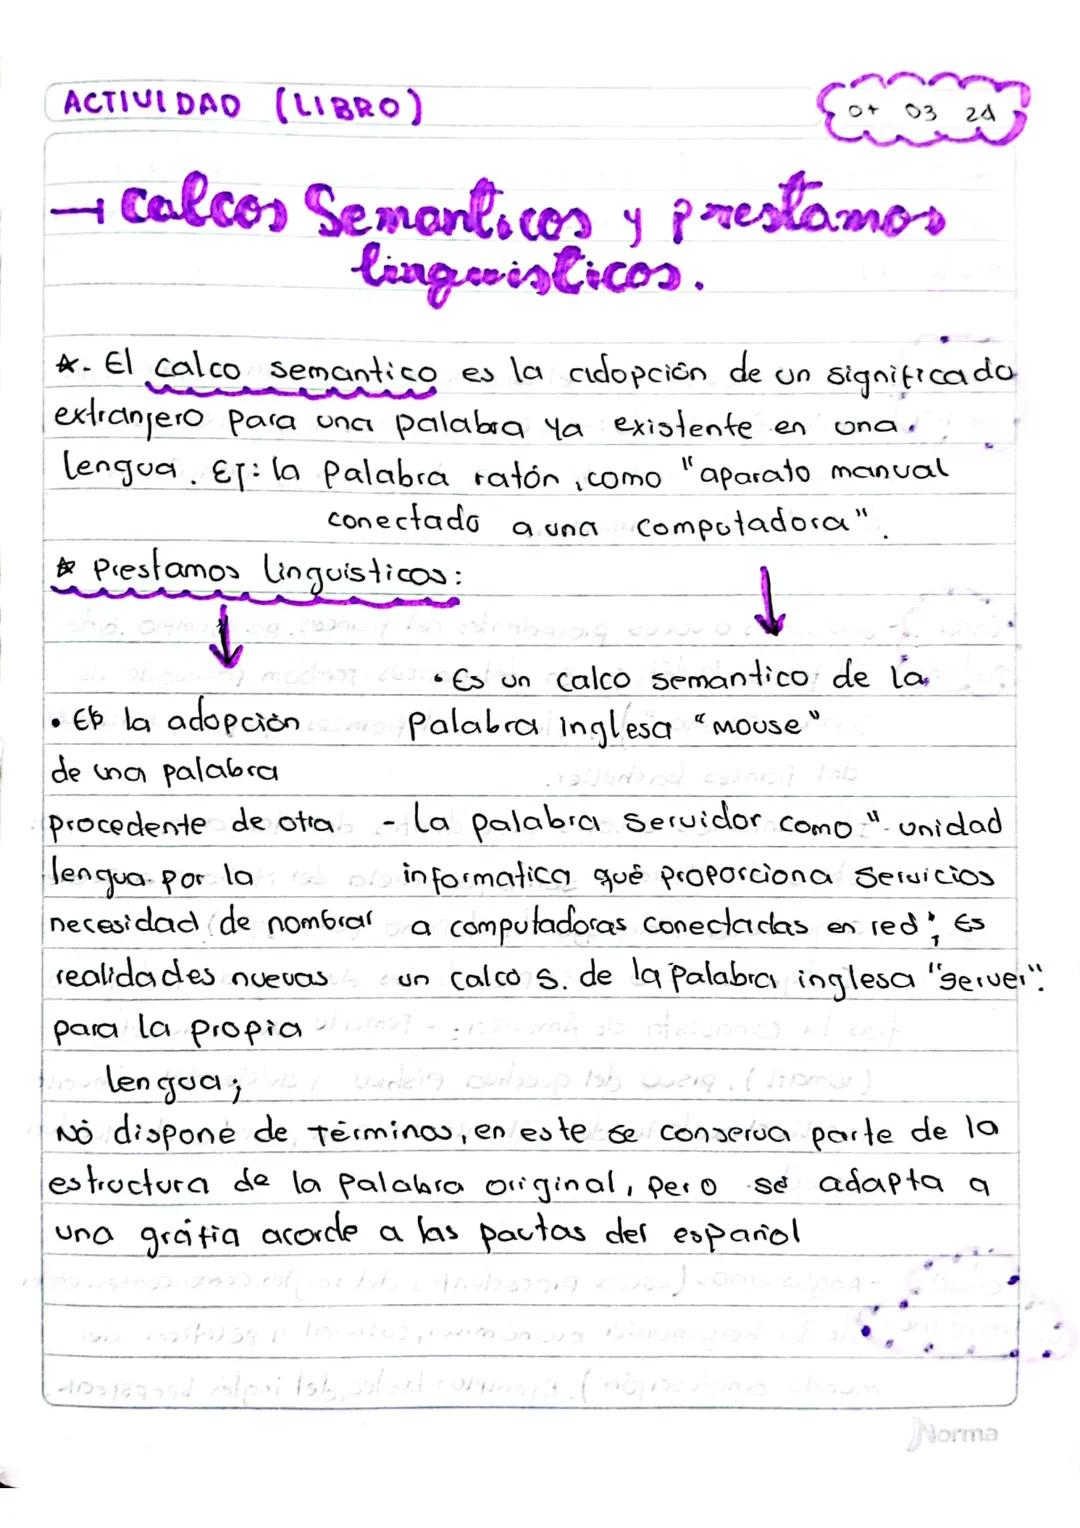 ACTIVIDAD (LIBRO)
07 03 24
→ Calcos Semanticos y prestamos
linguisticos.
☆. El calco semantico es la adopción de un significado
extranjero para una palabra ya existente en una
lengua. Ej: la palabra ratón, como "aparato manual
conectado a una computadora".
☆ Prestamos linguisticos:
• Es un calco semantico de la
palabra inglesa "mouse"
- La palabra servidor como "unidad
informatica qué proporciona servicios
a computadoras conectadas en red"; Es
un calco s. de la palabra inglesa "server".
• Es la adopción
de una palabra
procedente de otra
lengua por la
necesidad de nombrar
realidades nuevas
para la propia
lengua;
No dispone de términos, en este se conserva parte de la
estructura de la palabra original, pero se adapta a
una gráfia acorde a las pautas del español
Norma